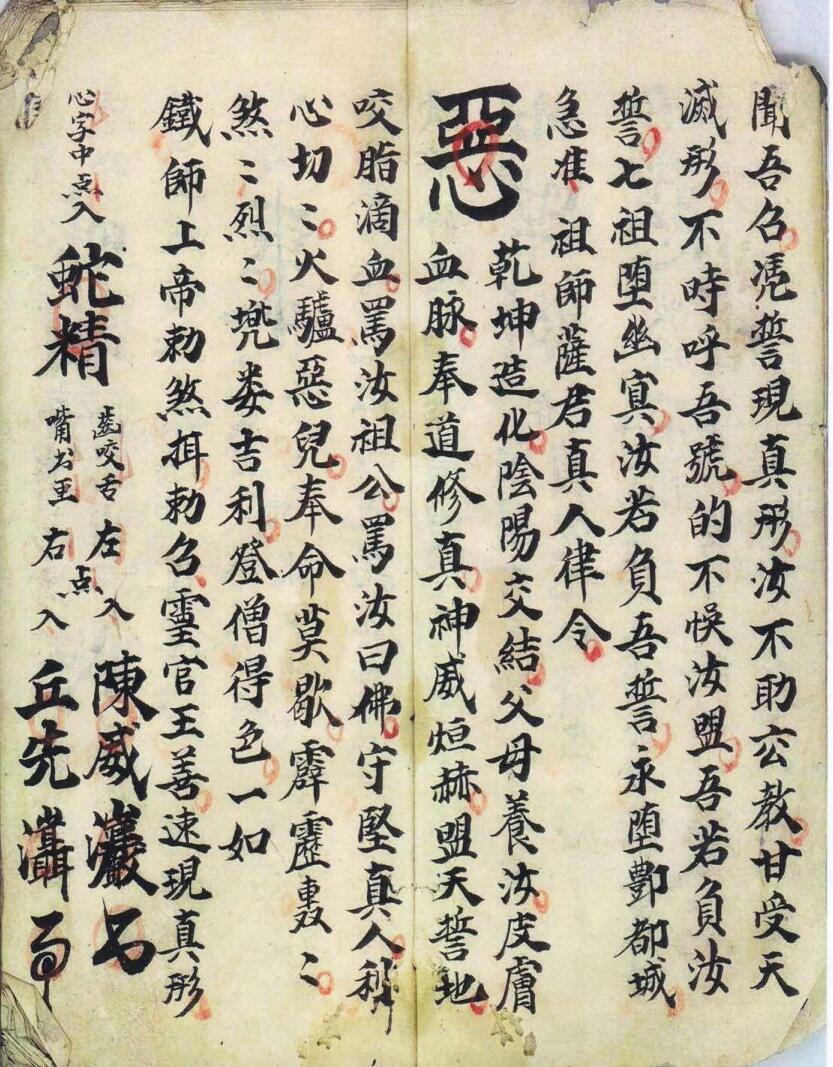 聞吾召凴誓現真形汝不助玄教甘受天
滅形不時呼吾號的不悞汝盟吾若負汝
誓七祖堕幽冥汝若負吾誓永堕酆都城
急准祖師薩君真人律令
惡
乾坤造化陰陽交結父母養汝皮膚
血脉奉道修真神威烜赫盟天誓地
咬脂滴血罵汝祖公罵汝曰佛守堅真人
心切〻火驢惡兒奉命莫歇霹靂轟〻
煞〻烈〻兠娄吉利登僧得色一如
鐵師上帝勅煞揖勅召霊官王善速現真形
心字中点入
蛇精
歯咬舌左点入
嘴右入
陳威
丘先